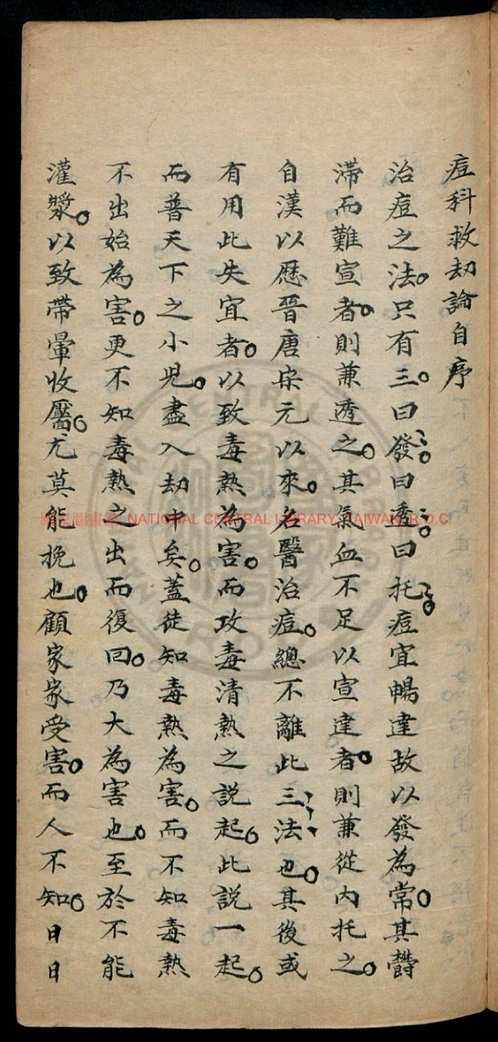 痘科救劫論自序
治痘之法。只有三。曰發。曰透。曰托。痘宜暢達故以發為常。其欝
滯而難宣者。則兼透之。其氣血不足以宣達者。則兼從內托之。
自漢以歷晉唐宋元以來。名醫治痘。總不離此三法也。其後或
有用此失宜者。以致毒熱為害。而攻毒清熱之說起。此說一起。
而普天下之小兒。盡入劫中矣。蓋徒知毒熱為害。而不知毒熱
不出始為害。更不知毒熱之出而復回。乃大為害也。至於不能
灌漿。以致帶暈收靨。尤莫能挽也。顧家家受害。而人不知。日日
NATIONAL CENTRAL LIBRARY, TAIWAN, R.O.C